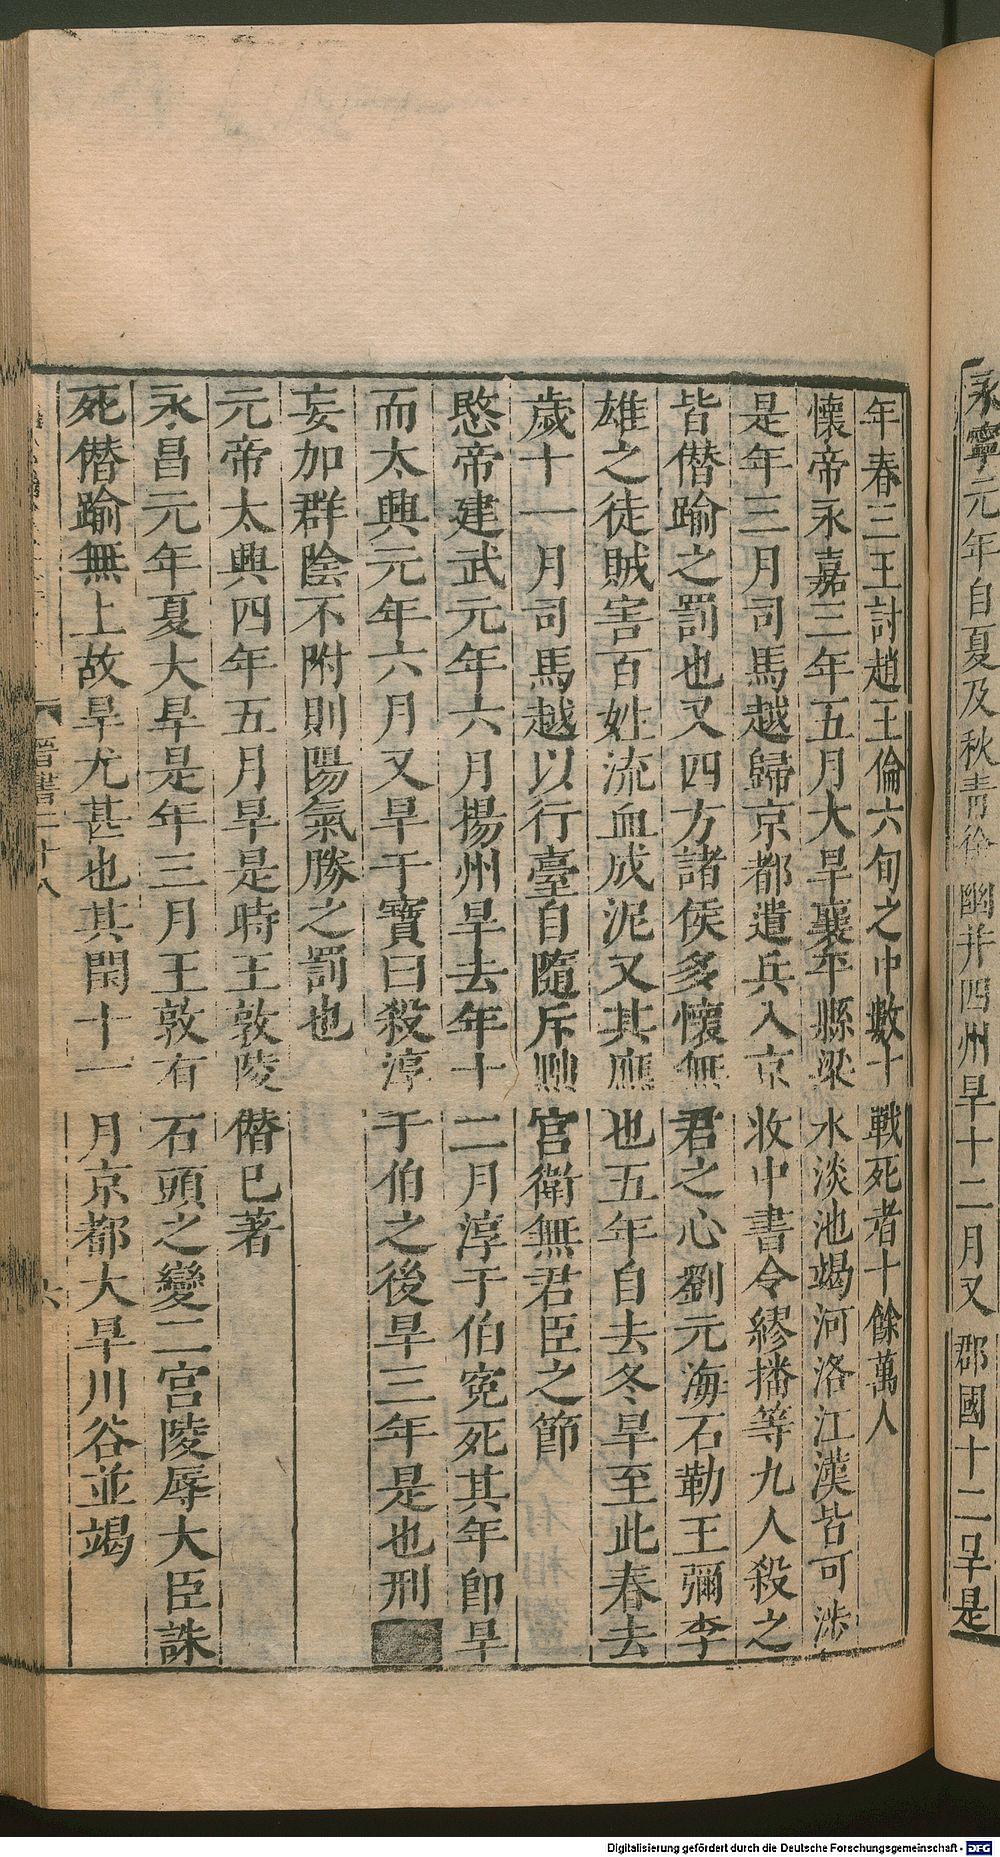 永寧元年自夏及秋青徐幽并四州旱十二月又郡國十二旱是
年春三王討趙王倫六旬之中數十戰死者十餘萬人
懷帝永嘉三年五月大旱襄平縣梁水淡池竭河洛江漢皆可涉
是年三月司馬越歸京都遣兵入京收中書令繆播等九人殺之
皆僭踰之罰也又四方諸侯多懷無君之心劉元海石勒王彌李
雄之徒賊害百姓流血成泥又其應也五年自去冬旱至此春去
歲十一月司馬越以行臺自隨斥黜宮衛無君臣之節
愍帝建武元年六月揚州旱去年十二月淳于伯冤死其年即旱
而太興元年六月又旱干寶曰殺淳于伯之後旱三年是也刑
妄加群陰不附則陽氣勝之罰也
元帝太興四年五月旱是時王敦陵僭已著
永昌元年夏大旱是年三月王敦有石頭之變二宮陵辱大臣誅
死僭踰無上故旱尤甚也其閏十一月京都大旱川谷並竭
晉書二十八
六
Digitalisierung gefördert durch die Deutsche Forschungsgemeinschaft - DFG